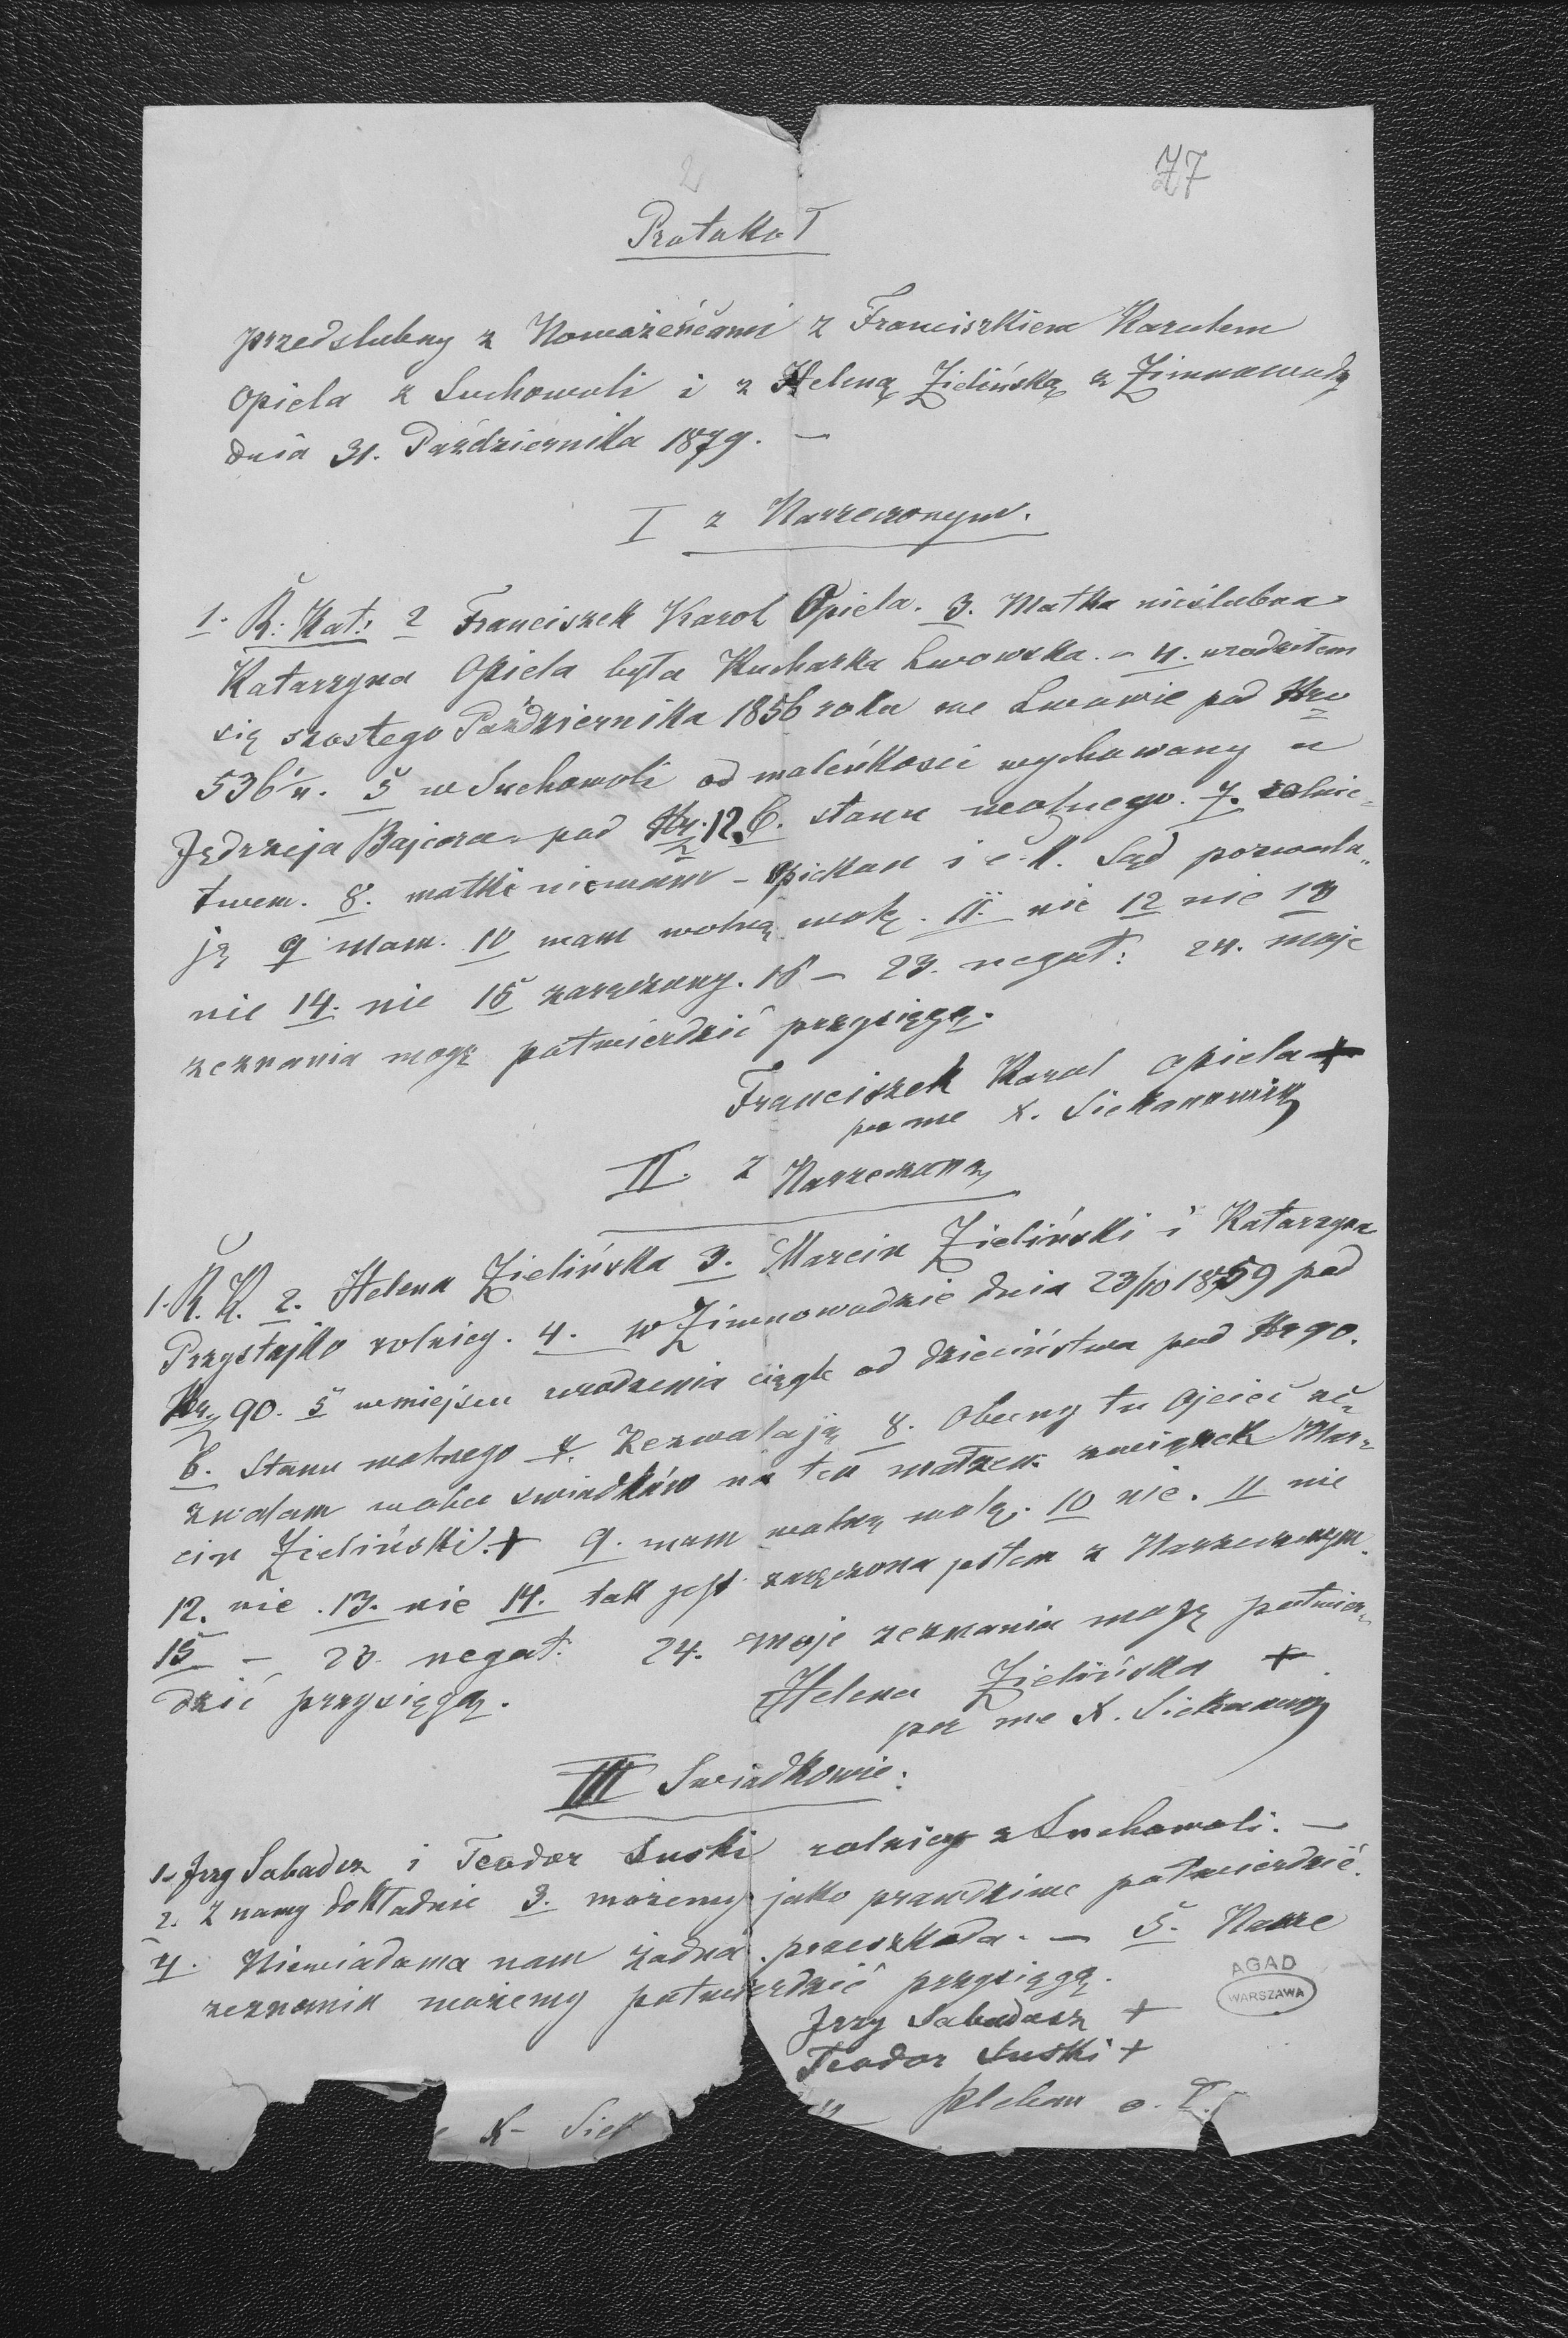 2
77
Protokoł
przedslubny z Nowożeńcami z Franciszkiem Karolem
Opiela z Suchowoli i z Heleną Zielińską z Zimnowody
dnia 31. Października 1879. —
I z Narzeczonym.
1. R: Kat: 2 Franciszek Karol Opiela. 3. Matka nieślubna
Katarzyna Opiela była Kucharka Lwowska. – 4. urodziłem
się szostego Października 1856 roku we Lwowie pod Nro
536 5 w Suchowoli od maleńkosci wychowany u
Jędrzeja Bajcora pod Nr. 12. 6. stanu wolnego. 7. rolnic-
twem. 8. matki niemam – opiekun i Sąd pozwala-
ją 9 mam. 10 mam wolną wolę. 11. nie 12 nie 13
nie 14. nie 15 zaręczony. 16 – 23. negat: 24. moje
zeznania mogę potwierdzić przysięgą.
Franciszek Karol Opiela +
per me X. Siekanowicz
II. z Narzeczoną
1. R. K. 2. Helena Zielińska 3. Marcin Zieliński i Katarzyna
Przystajko rolnicy. 4. w Zimnowodzie dnia 23/10 1859 pod
Nr 90. 5 w miejscu urodzenia ciągle od dzieciństwa pod Nr 90.
6. Stanu wolnego 7. Zezwalają 8. Obecny tu Ojcieć ze-
zwalam wobec swiadków na ten małżen. związek Mar-
cin Zieliński. + 9. mam wolną wolę. 10 nie. 11 nie
12. nie. 13. nie 14. tak jest zaręczona jestem z Narzeczonym.
15 – 23. negat. 24. moje zeznania mogę potwier-
dzić przysięgą.
Helena Zielińska +
per me X. Siekanowicz
III Swiadkowie:
1. Jrzy Sabadasz i Teodor Suski rolnicy z Suchowoli. —
2. Znamy dokładnie 3. możemy jako prawdziwe potwierdzić.
4. Niewiadoma nam żadna przeszkoda. — 5. Nasze
zeznania możemy potwierdzić przysięgą.
Jrzy Sabadasz +
Teodor Suski +
X. Siek
Pleban o. ł.
AGAD
WARSZAWA